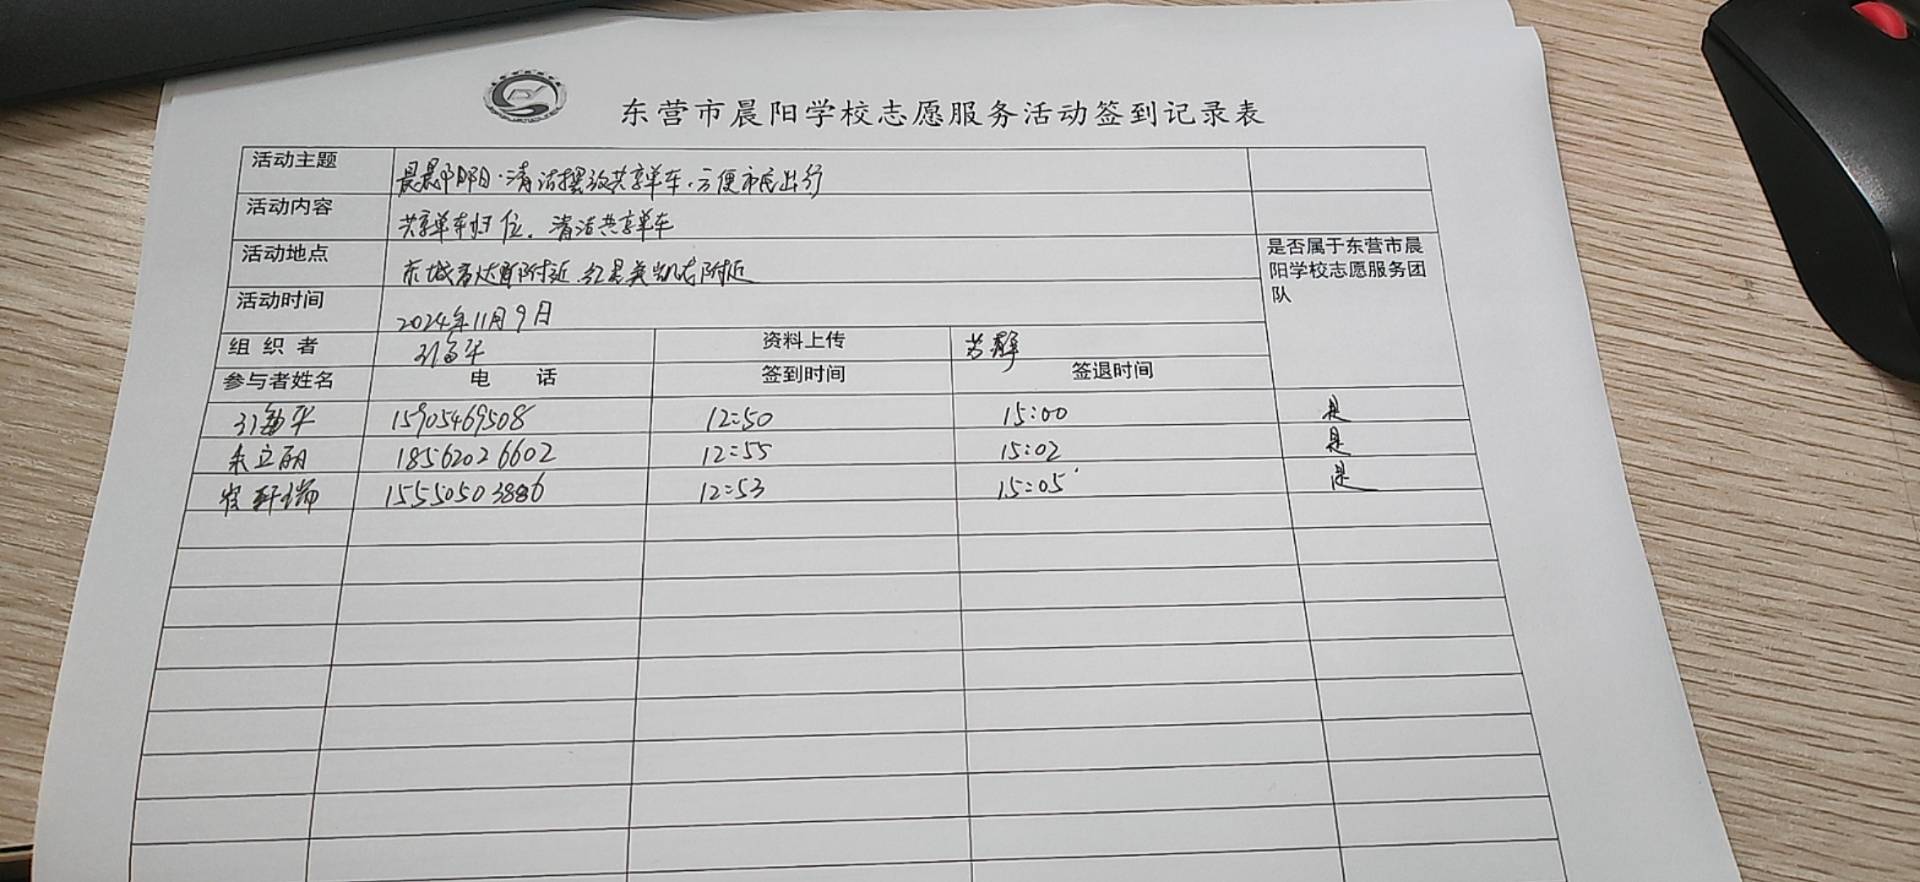 东营市晨阳学校志愿服务活动签到记录表
活动主题 清洁摆放共享单车·方便市民出行
活动内容 共享单车归位、清洁共享单车
活动地点 东城 附近、红星美凯龙附近
是否属于东营市晨阳学校志愿服务团队
活动时间 2024年11月9日
组织者 资料上传 静
参与者姓名 电 话 签到时间 签退时间
15905469508 12:50 15:00 是
朱立丽 18562026602 12:55 15:02 是
轩瑞 15550503886 12:53 15:05 是